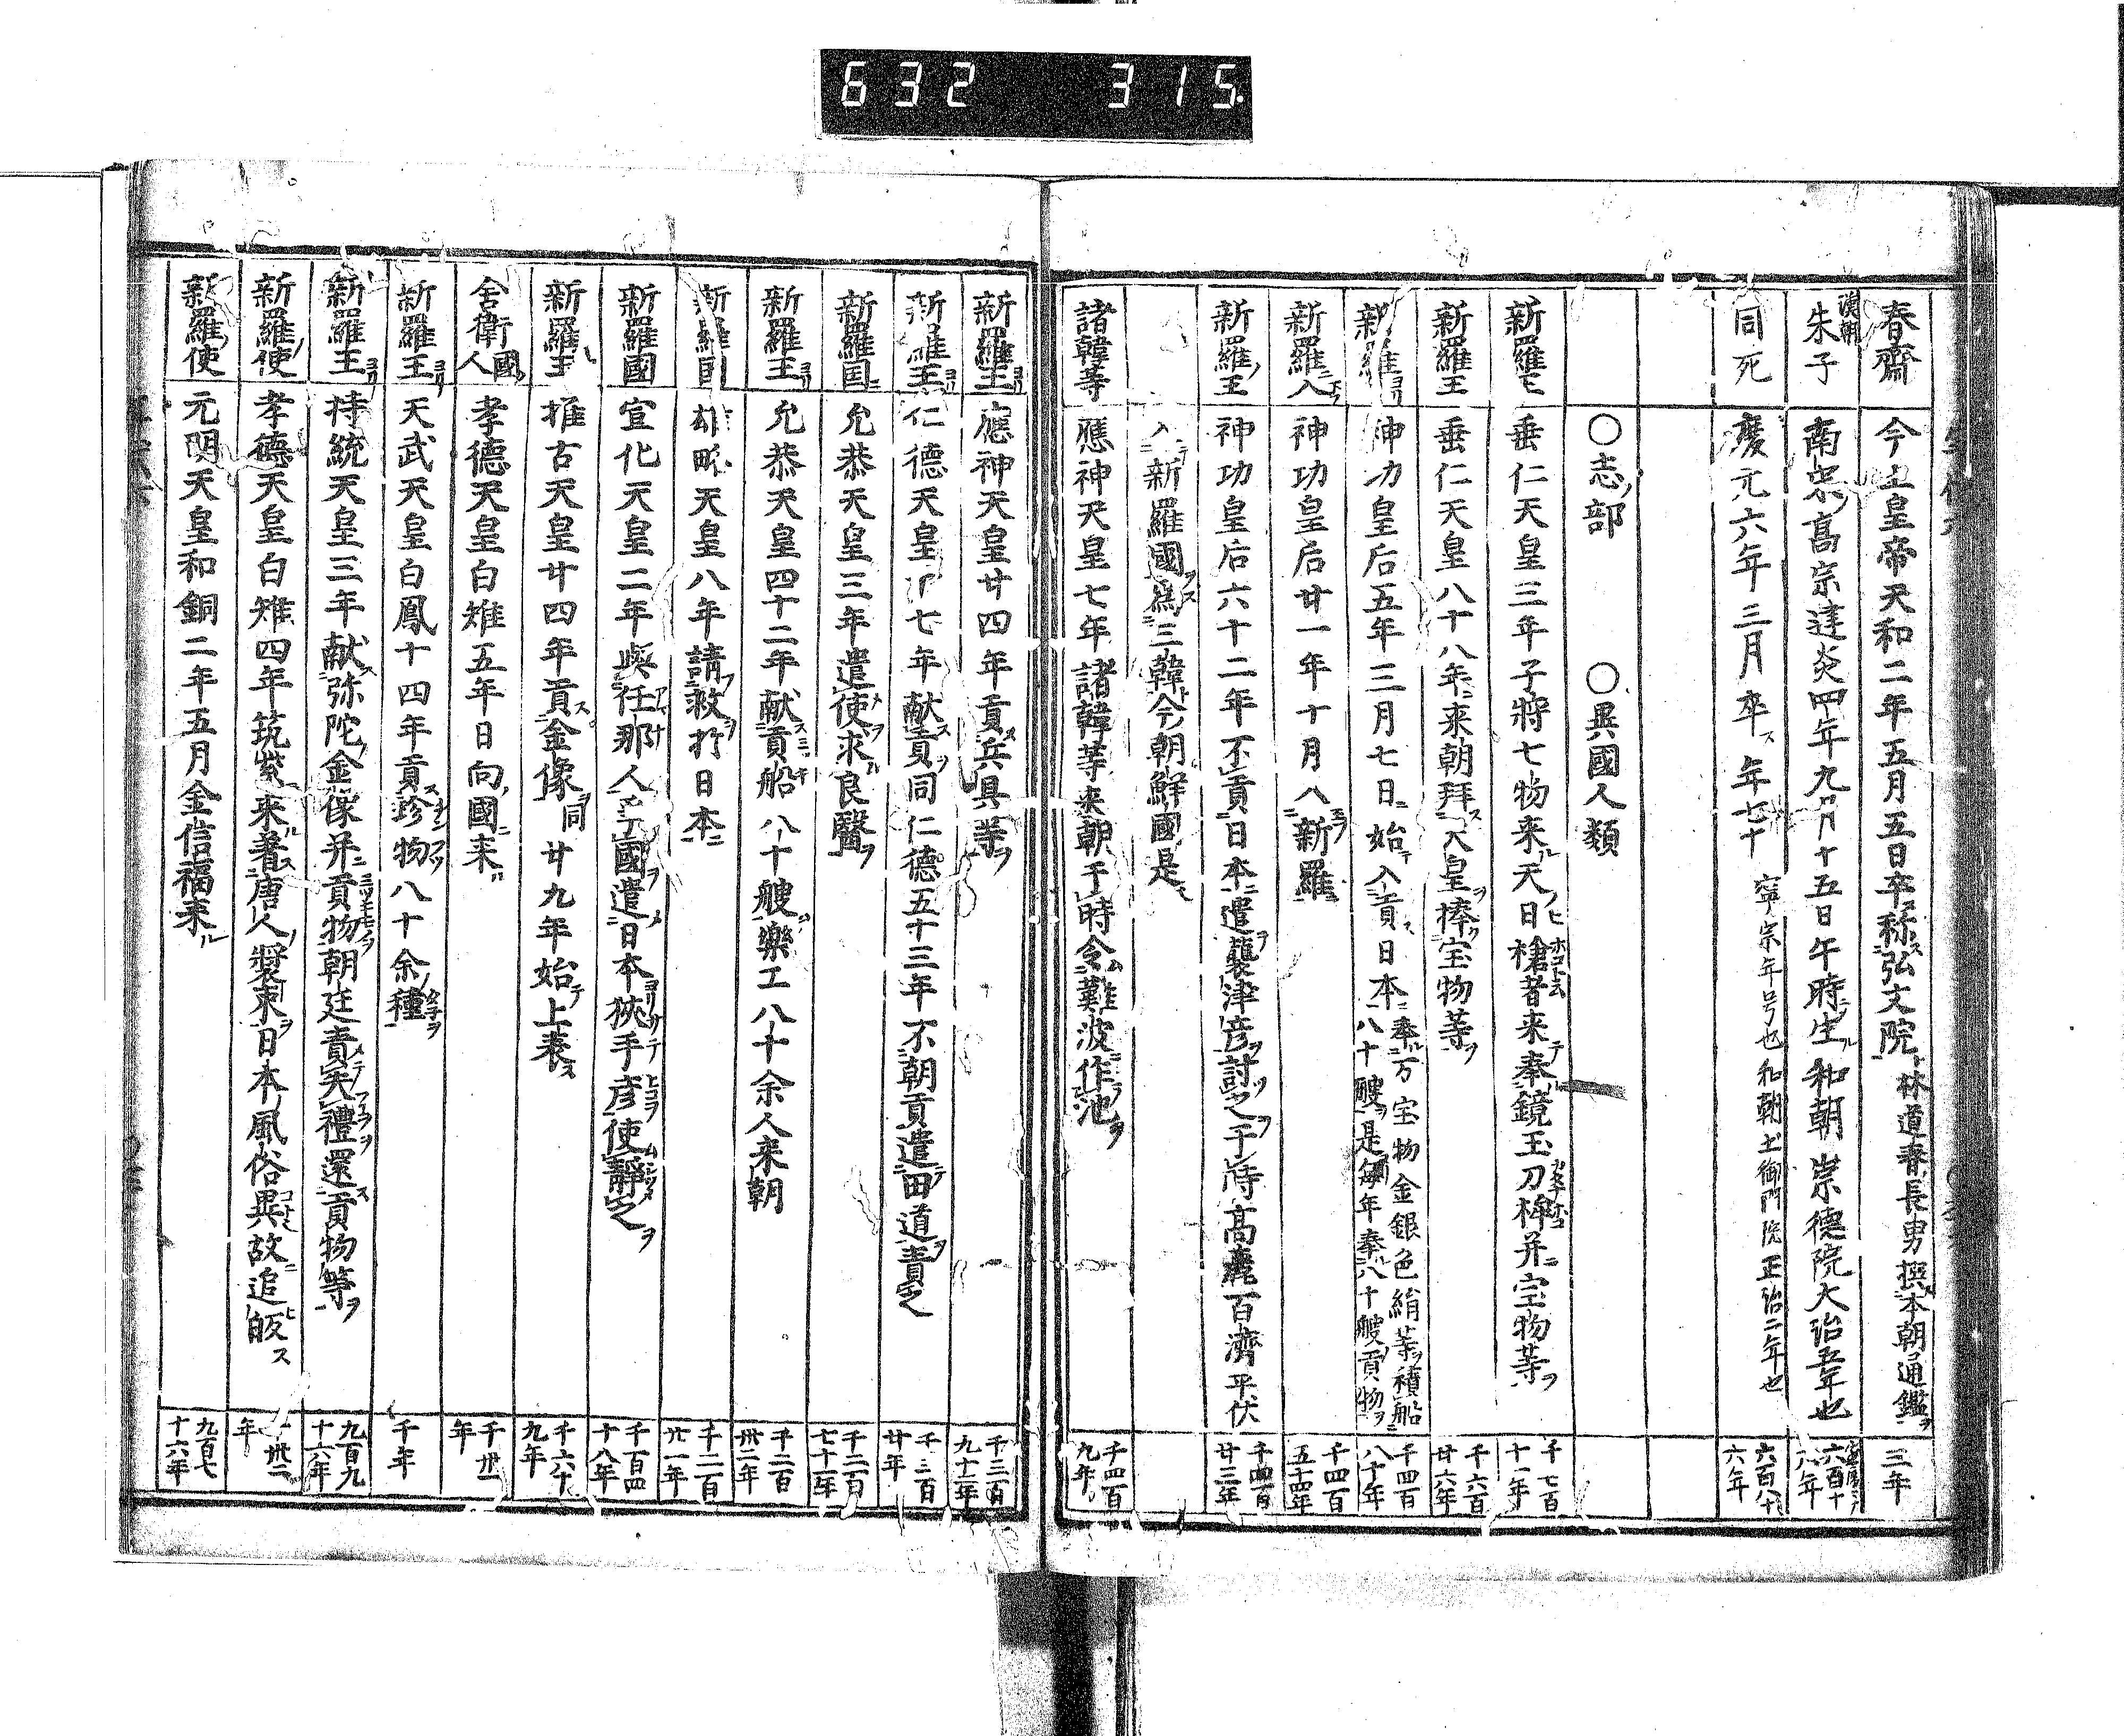 632 315
春齋 今上皇帝天和二年五月五日卒称弘文院林道春長男撰本朝通鑑 三年
漢朝朱子 南宋高宗建炎四年九月十五日午時生和朝崇德院大治五年也 六百十八年
同死 慶元六年三月卒年七十寧宗年号也和朝土御門院正治二年也 六百八十六年
○志部 ○異國人類
新羅王 垂仁天皇三年子將七物来天日槍者来奉鏡玉刀桙并宝物等 千七百十一年
新羅王 垂仁天皇八十八年来朝拜天皇捧宝物等 千六百廿六年
新羅ヨリ 神功皇后五年三月七日始入貢日本奉万宝物金銀色絹等積船八十艘是毎年奉八十艘貢物 千四百八十年
新羅入 神功皇后廿一年十月入新羅 千四百五十四年
新羅王 神功皇后六十二年不貢日本遣襲津彦討之于時高麗百濟平伏 千四百廿三年
入新羅國為三韓今朝鮮國是
諸韓等 應神天皇七年諸韓等来朝于時令難波作池 千四百九年
新羅王ヨリ 應神天皇廿四年貢兵具等 千三百九十二年
新羅王ヨリ 仁德天皇十七年献貢同仁德五十三年不朝貢遣田道責之 千三百廿年
新羅国ニ 允恭天皇三年遣使求良醫 千二百七十一年
新羅王ヨリ 允恭天皇四十二年献貢船八十艘樂工八十余人来朝 千二百卅二年
新羅国 雄略天皇八年請救於日本 千二百廿一年
新羅國 宣化天皇二年與任那人争國遣日本狹手彦使靜之 千百四十八年
新羅王 推古天皇廿四年貢金像同廿九年始上表 千六十九年
舍衛國人 孝德天皇白雉五年日向國来 千卅一年
新羅王ヨリ 天武天皇白鳳十四年貢珍物八十余種 千年
新羅王ヨリ 持統天皇三年献弥陀金像并貢物朝廷責失禮還貢物等 九百九十六年
新羅使 孝德天皇白雉四年筑紫来着唐人裝束日本風俗異故追皈ス 千卅二年
新羅使 元明天皇和銅二年五月金信福来 九百七十六年